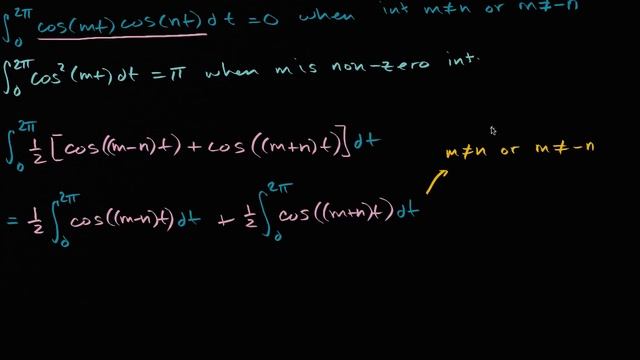 ∫₀^2π cos(mt) cos(nt) dt = 0 when int m≠n or m≠-n
∫₀^2π cos²(mt) dt = π when m is non-zero int.
∫₀^2π 1/2 [cos((m-n)t) + cos((m+n)t)] dt
m≠n or m≠-n
= 1/2 ∫₀^2π cos((m-n)t) dt + 1/2 ∫₀^2π cos((m+n)t) dt